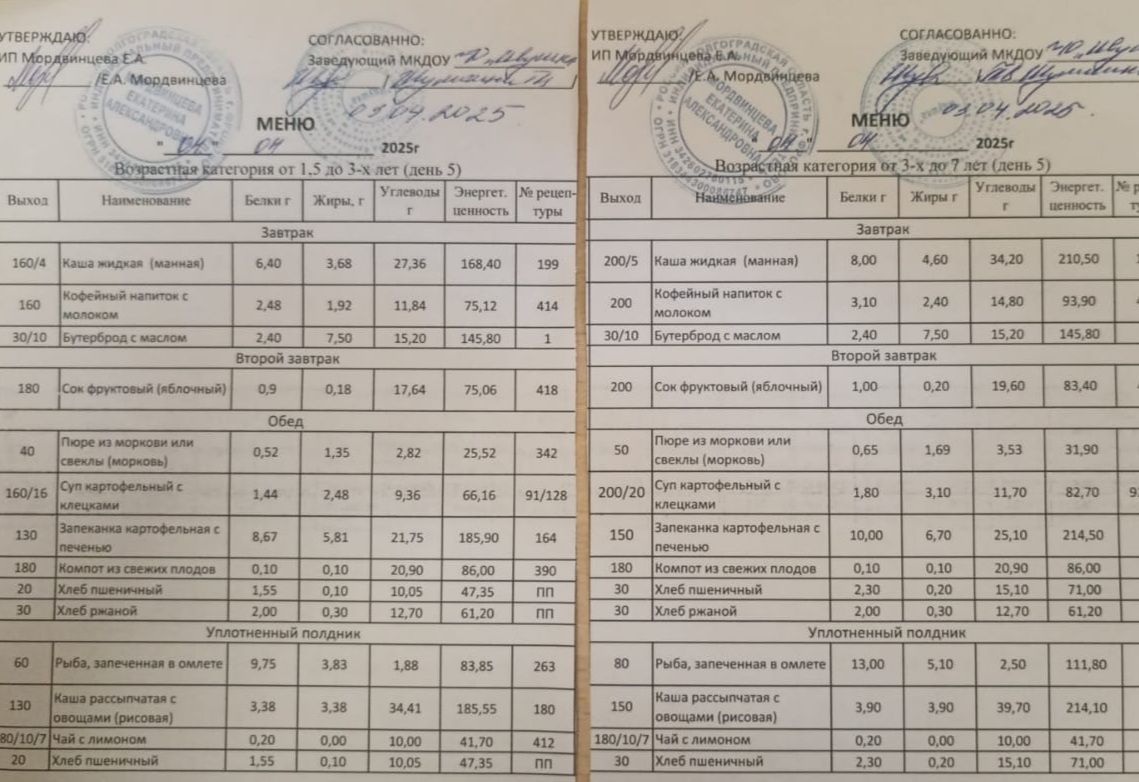 УТВЕРЖДАЮ:
СОГЛАСОВАННО:
ИП Мордвинцева Е.А.
Заведующий МКДОУ
/Е.А. Мордвинцева
03.04.2025
МЕНЮ
"04" 04 2025г
Возрастная категория от 1,5 до 3-х лет (день 5)
Выход Наименование Белки г Жиры, г Углеводы г Энергет. ценность № рецептуры
Завтрак
160/4 Каша жидкая (манная) 6,40 3,68 27,36 168,40 199
160 Кофейный напиток с молоком 2,48 1,92 11,84 75,12 414
30/10 Бутерброд с маслом 2,40 7,50 15,20 145,80 1
Второй завтрак
180 Сок фруктовый (яблочный) 0,9 0,18 17,64 75,06 418
Обед
40 Пюре из моркови или свеклы (морковь) 0,52 1,35 2,82 25,52 342
160/16 Суп картофельный с клецками 1,44 2,48 9,36 66,16 91/128
130 Запеканка картофельная с печенью 8,67 5,81 21,75 185,90 164
180 Компот из свежих плодов 0,10 0,10 20,90 86,00 390
20 Хлеб пшеничный 1,55 0,10 10,05 47,35 ПП
30 Хлеб ржаной 2,00 0,30 12,70 61,20 ПП
Уплотненный полдник
60 Рыба, запеченная в омлете 9,75 3,83 1,88 83,85 263
130 Каша рассыпчатая с овощами (рисовая) 3,38 3,38 34,41 185,55 180
80/10/7 Чай с лимоном 0,20 0,00 10,00 41,70 412
20 Хлеб пшеничный 1,55 0,10 10,05 47,35 ПП
УТВЕРЖДАЮ:
СОГЛАСОВАННО:
ИП Мордвинцева Е.А.
Заведующий МКДОУ
/Е.А. Мордвинцева
03.04.2025.
МЕНЮ
"04" 04 2025г
Возрастная категория от 3-х до 7 лет (день 5)
Выход Наименование Белки г Жиры г Углеводы г Энергет. ценность
Завтрак
200/5 Каша жидкая (манная) 8,00 4,60 34,20 210,50
200 Кофейный напиток с молоком 3,10 2,40 14,80 93,90
30/10 Бутерброд с маслом 2,40 7,50 15,20 145,80
Второй завтрак
200 Сок фруктовый (яблочный) 1,00 0,20 19,60 83,40
Обед
50 Пюре из моркови или свеклы (морковь) 0,65 1,69 3,53 31,90
200/20 Суп картофельный с клецками 1,80 3,10 11,70 82,70
150 Запеканка картофельная с печенью 10,00 6,70 25,10 214,50
180 Компот из свежих плодов 0,10 0,10 20,90 86,00
30 Хлеб пшеничный 2,30 0,20 15,10 71,00
30 Хлеб ржаной 2,00 0,30 12,70 61,20
Уплотненный полдник
80 Рыба, запеченная в омлете 13,00 5,10 2,50 111,80
150 Каша рассыпчатая с овощами (рисовая) 3,90 3,90 39,70 214,10
180/10/7 Чай с лимоном 0,20 0,00 10,00 41,70
30 Хлеб пшеничный 2,30 0,20 15,10 71,00